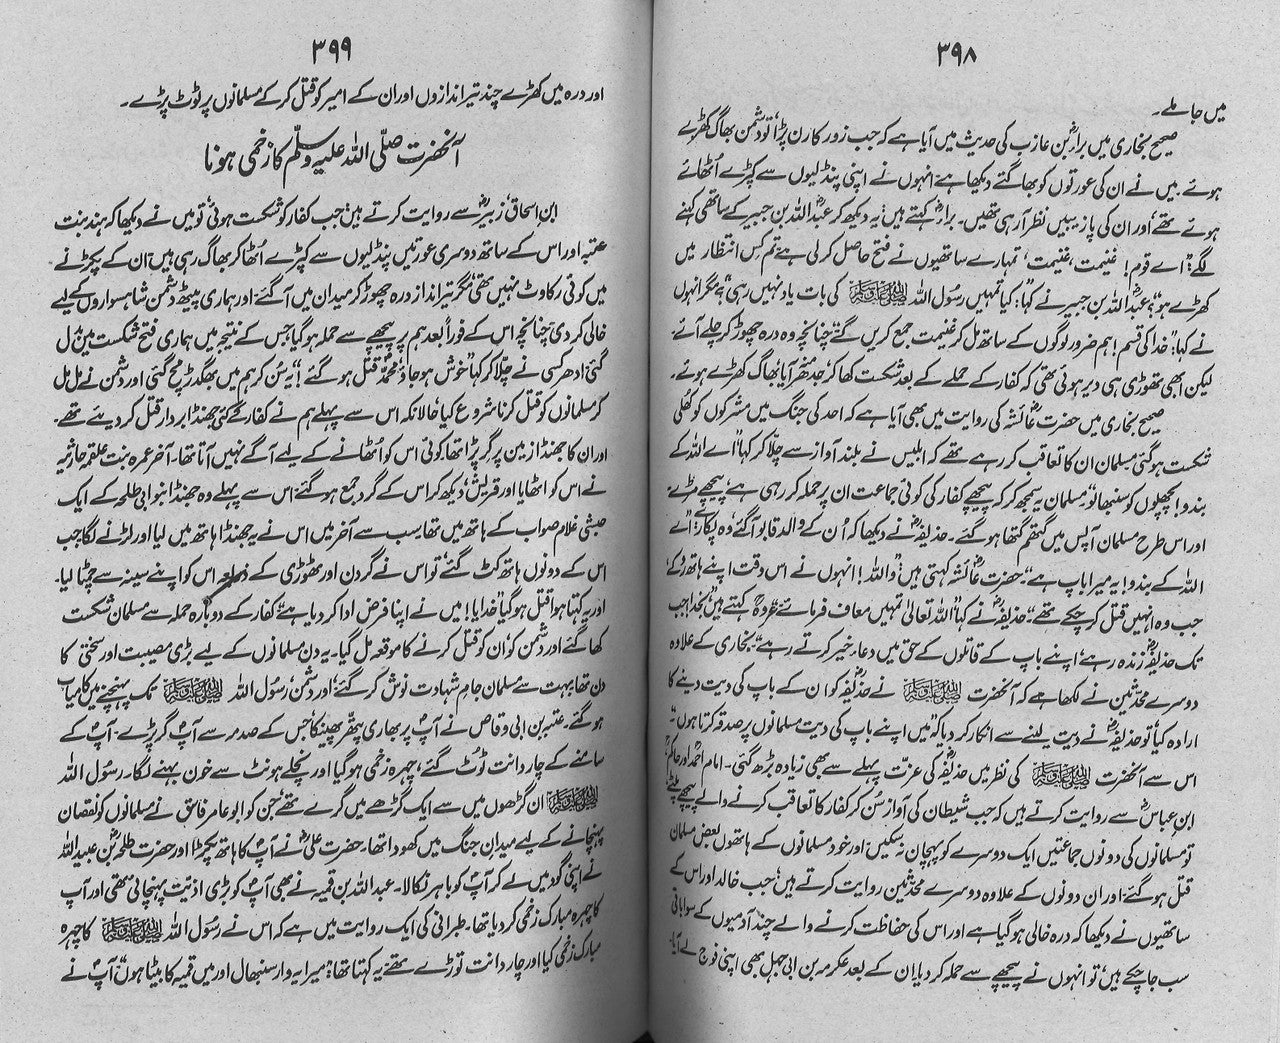 ۳۹۸
میں جا ملے۔
صحیح بخاری میں براءؓ بن عازب کی حدیث میں آیا ہے کہ جب زور کا رن پڑا، تو دشمن بھاگ کھڑے
ہوئے۔ میں نے ان کی عورتوں کو بھاگتے دیکھا ہے انہوں نے اپنی پنڈلیوں سے کپڑے اُٹھائے
ہوئے تھے، اور ان کی پازیبیں نظر آ رہی تھیں۔ براءؓ کہتے ہیں: یہ دیکھ کر عبداللہ بن جبیر کے ساتھی کہنے
لگے: "اے قوم! غنیمت، غنیمت، تمہارے ساتھیوں نے فتح حاصل کر لی ہے تم کس انتظار میں
کھڑے ہو؟" عبداللہؓ بن جبیر نے کہا: "کیا تمہیں رسُول اللہ ﷺ کی بات یاد نہیں رہی؟" مگر انہوں
نے کہا: "خدا کی قسم! ہم ضرور لوگوں کے ساتھ مل کر غنیمت جمع کریں گے" چنانچہ وہ درہ چھوڑ کر چلے آئے
لیکن ابھی تھوڑی ہی دیر ہوئی تھی کہ کفار کے حملے کے بعد شکست کھا کر جدھر منہ آیا، بھاگ کھڑے ہوئے۔
صحیح بخاری میں حضرت عائشہؓ کی روایت میں بھی آیا ہے کہ احد کی جنگ میں مشرکوں کو کھلی
شکست ہو گئی مسلمان ان کا تعاقب کر رہے تھے کہ ابلیس نے بلند آواز سے چلّا کر کہا "اے اللہ کے
بندو! پچھلوں کو سنبھالو" مسلمان یہ سمجھ کر کہ پیچھے کفار کی کوئی جماعت ان پر حملہ کر رہی ہے، پیچھے مڑے۔
اور اس طرح مسلمان آپس میں گتھم گتھا ہو گئے۔ حذیفہؓ نے دیکھا کہ اُن کے والد قابو آ گئے، وہ پکارے: "اے
اللہ کے بندو! یہ میرا باپ ہے"۔ حضرت عائشہؓ کہتی ہیں: "واللہ! انہوں نے اس وقت اپنے ہاتھ روکے
جب وہ انہیں قتل کر چکے تھے"۔ حذیفہؓ نے کہا "اللہ تعالیٰ تمہیں معاف فرمائے" عروہؒ کہتے ہیں: "بخدا جب
تک حذیفہؓ زندہ رہے، اپنے باپ کے قاتلوں کے حق میں دعاء خیر کرتے رہے"۔ بخاری کے علاوہ
دوسرے محدّثین نے لکھا ہے کہ آنحضرت ﷺ نے حذیفہؓ کو ان کے باپ کی دیت دینے کا
ارادہ کیا، تو حذیفہؓ نے دیت لینے سے انکار کر دیا کہ "میں اپنے باپ کی دیت مسلمانوں پر صدقہ کرتا ہوں"۔
اس سے آنحضرت ﷺ کی نظر میں حذیفہؓ کی عزّت پہلے سے بھی زیادہ بڑھ گئی۔ امام احمدؒ اور حاکمؒ
ابن عباسؓ سے روایت کرتے ہیں کہ جب شیطان کی آواز سُن کر کفار کا تعاقب کرنے والے پیچھے پلٹے
تو مسلمانوں کی دونوں جماعتیں ایک دوسرے کو پہچان نہ سکیں، اور خود مسلمانوں کے ہاتھوں بعض مسلمان
قتل ہو گئے، اور ان دونوں کے علاوہ دوسرے محدّثین روایت کرتے ہیں، جب خالد اور اس کے
ساتھیوں نے دیکھا کہ درہ خالی ہو گیا ہے اور اس کی حفاظت کرنے والے چند آدمیوں کے سوا باقی
سب جا چکے ہیں، تو انہوں نے پیچھے سے حملہ کر دیا، ان کے بعد عکرمہ بن ابی جہل بھی اپنی فوج لے آیا۔
۳۹۹
اور درہ میں کھڑے چند تیر اندازوں اور ان کے امیر کو قتل کر کے مسلمانوں پر ٹوٹ پڑے۔
آنحضرت صلّی اللہ علیہ وسلّم کا زخمی ہونا
ابن اسحاق، زبیرؓ سے روایت کرتے ہیں: جب کفار کو شکست ہوئی، تو میں نے دیکھا کہ ہند بنت
عتبہ اور اس کے ساتھ دوسری عورتیں پنڈلیوں سے کپڑے اُٹھا کر بھاگ رہی ہیں، ان کے پکڑنے
میں کوئی رکاوٹ نہیں تھی، مگر تیر انداز درہ چھوڑ کر میدان میں آ گئے اور ہماری پیٹھ دشمن شاہسواروں کے لیے
خالی کر دی، چنانچہ اس کے فوراً بعد ہم پر پیچھے سے حملہ ہو گیا، جس کے نتیجہ میں ہماری فتح شکست میں بدل
گئی، ادھر کسی نے چلّا کر کہا "خوش ہو جاؤ، محمدؐ قتل ہو گئے!" یہ سُن کر ہم میں بھگدڑ مچ گئی اور دشمن نے مل مل
کر مسلمانوں کو قتل کرنا شروع کیا، حالانکہ اس سے پہلے ہم نے کفار کے کئی جھنڈا بردار قتل کر دیئے تھے۔
اور ان کا جھنڈا زمین پر گر پڑا تھا، کوئی اس کو اُٹھانے کے لیے آگے نہیں آتا تھا۔ آخر عمرہ بنت علقمہ حارثیہ
نے اس کو اٹھایا اور قریش، دیکھ کر اس کے گرد جمع ہو گئے، اس سے پہلے وہ جھنڈا بنو ابی طلحہ کے ایک
حبشی غلام صواب کے ہاتھ میں تھا، سب سے آخر میں اس نے یہ جھنڈا ہاتھ میں لیا اور لڑنے لگا، جب
اس کے دونوں ہاتھ کٹ گئے، تو اس نے گردن اور ٹھوڑی کے ذریعہ اس کو اپنے سینہ سے چمٹا لیا۔
اور یہ کہتا ہوا قتل ہو گیا "خدایا! میں نے اپنا فرض ادا کر دیا ہے" کفار کے دوبارہ حملہ سے مسلمان شکست
کھا گئے اور دشمن کو ان کو قتل کرنے کا موقعہ مل گیا۔ یہ دن مسلمانوں کے لیے بڑی مصیبت اور سختی کا
دن تھا، بہت سے مسلمان جامِ شہادت نوش کر گئے، اور دشمن، رسُول اللہ ﷺ تک پہنچنے میں کامیاب
ہو گئے۔ عتبہ بن ابی وقاص نے آپؐ پر بھاری پتھر پھینکا، جس کے صدمہ سے آپؐ گر پڑے۔ آپؐ کے
سامنے کے چار دانت ٹوٹ گئے، چہرہ زخمی ہو گیا اور نچلے ہونٹ سے خون بہنے لگا۔ رسُول اللہ
ﷺ ان گڑھوں میں سے ایک گڑھے میں گرے تھے، جن کو ابو عامر فاسق نے مسلمانوں کو نقصان
پہنچانے کے لیے میدانِ جنگ میں کھودا تھا۔ حضرت علیؓ نے آپؐ کا ہاتھ پکڑا اور حضرت طلحہؓ بن عبیداللہ
نے اپنی گود میں لے کر آپؐ کو باہر نکالا۔ عبداللہ بن قمیہ نے بھی آپؐ کو بڑی اذیّت پہنچائی تھی اور آپ
کا چہرہ مبارک زخمی کر دیا تھا۔ طبرانی کی ایک روایت میں ہے کہ اس نے رسُول اللہ ﷺ کا چہرہ
مبارک زخمی کیا اور چار دانت توڑے تھے، یہ کہتا تھا: "میرا یہ وار سنبھال اور میں قمیہ کا بیٹا ہوں" آپؐ نے